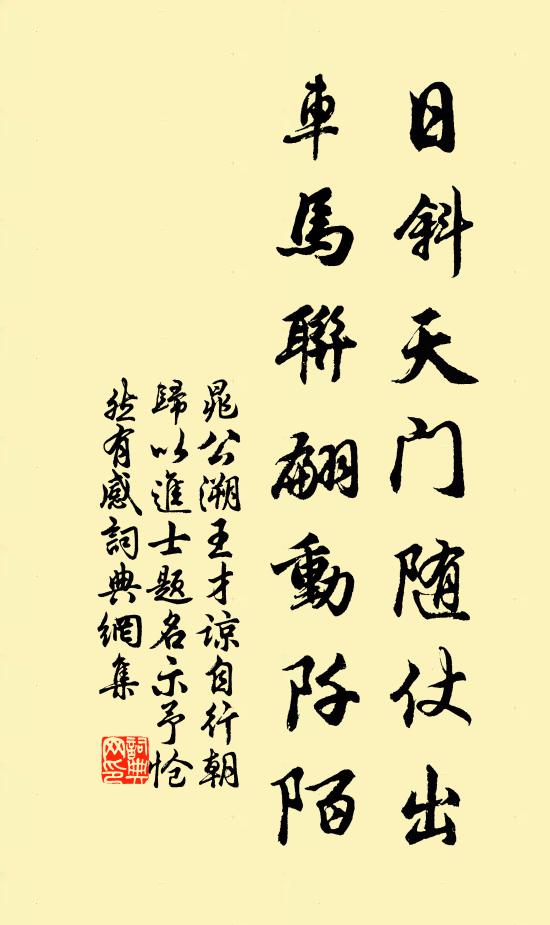 日斜天门随仗出
車馬聯翩動阡陌
晁公溯王才諒自行朝
歸以進士题名示予怆
然有感詞典網集
詞典
网印